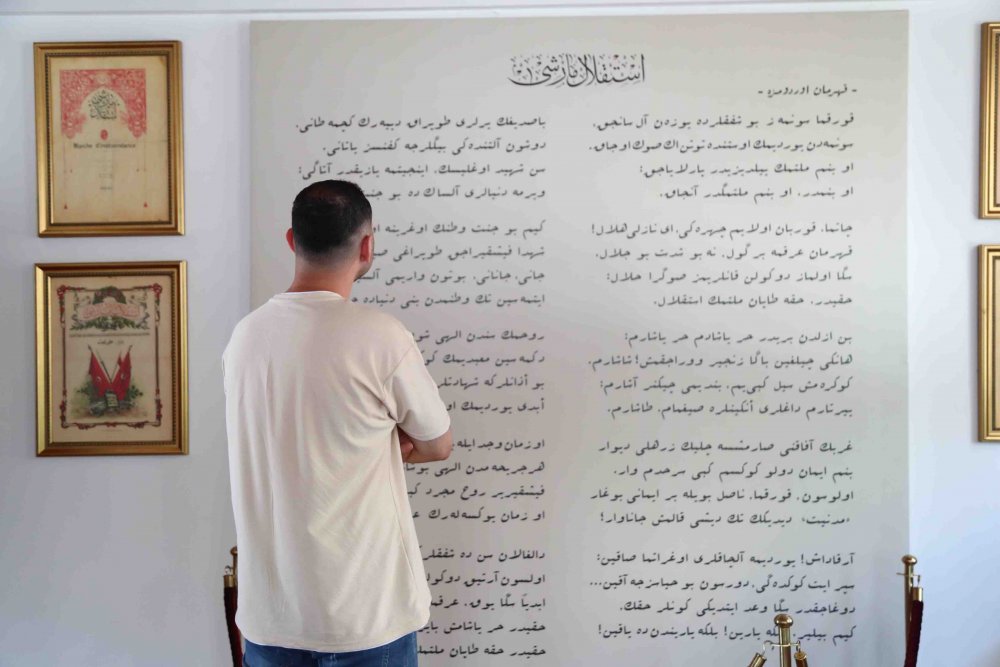 استقلال مارشی
- قهرمان اوردومزه -
قورقما سونمه ز بو شفقلرده یوزه‌ن آل سانجق،
سونمه‌دن یوردیمك اوستنده توتن اڭ صوڭ اوجاق.
او بنم ملتمك ییلدیزیدر پارلایاجق؛
او بنمدر، او بنم ملتمڭدر آنجاق.
چاتما، قوربان اولایم چهره‌كی، ای نازلی هلال!
قهرمان عرقمه بر گول، نه بو شدت بو جلال،
سڭا اولماز دوكولن قانلریمز صوڭرا حلال؛
حقیدر، حقه طاپان ملتمك استقلال.
بن ازلدن بریدر حر یاشادم حر یاشارم؛
هانكی چیلغین باڭا زنجیر ووراجقمش! شاشارم.
كوكره‌مش سیل كبی‌یم، بندیمی چیكنر آشارم؛
ییرتارم داغلری آنكینلره صیغمام، طاشارم.
غربك آفاقنی صارمشسه چلیك زرهلی دیوار
بنم ایمان دولو كوكسم كبی سرحدم وار.
اولوسون، قورقما، ناصل بویله بر ایمانی بوغار
«مدنیت» دیدیكك تك دیشی قالمش جاناوار!
آرقاداش! یوردیمه آلچاقلری اوغراتما صاقین؛
سپر ایت كوكده‌كی، دورسون بو حیاسزجه آقین...
دوغاجقدر سڭا وعد ایتدیكی كونلر حقك،
كیم بیلیر بلكه یارین! بلكه یاریندن ده یاقین!
باصدیغك یرلری طوپراق دییه‌رك كچمه طانی،
دوشون آلتنده‌كی بیڭلرجه كفنسز یاتانی.
سن شهید اوغلیسك، اینجیتمه یازیقدر آتاڭی؛
ویرمه دنیالری آلساڭ ده بو
كیم بو جنت وطنك اوغرینه
شهدا فیشقیراجق طوپراغی
جانی، جانانی، بوتون واریمی
ایتمه‌سین تك وطنمدن بنی دنیاده
روحمك سندن الهی
دكمه‌سین معبدیمك
بو آذانلركه شهادتلر
أبدی یوردیمك
او زمان وجدایله
هر جریحه‌مدن الهی
فیشقیریر روح مجرد
او زمان یوكسه‌له‌رك
دالغالان سن ده
اولسون آرتیق دوكولن
ابدیاً سڭا یوق، عرقمه
حقیدر حر یاشامش
حقیدر حقه طاپان
Marche d'Indépendance